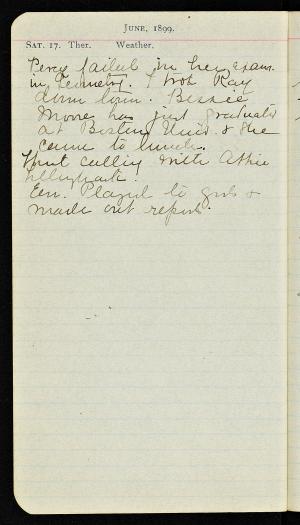 June, 1899.
Sat. 17. Ther. Weather.
Percy failed in her exam.
in Geometry. I took Ray
down town. Bessie
Moore has just graduated
at Boston Univ. & she
came to lunch.
Went calling with Abbie
Eve. Played to girls &
made out reports.